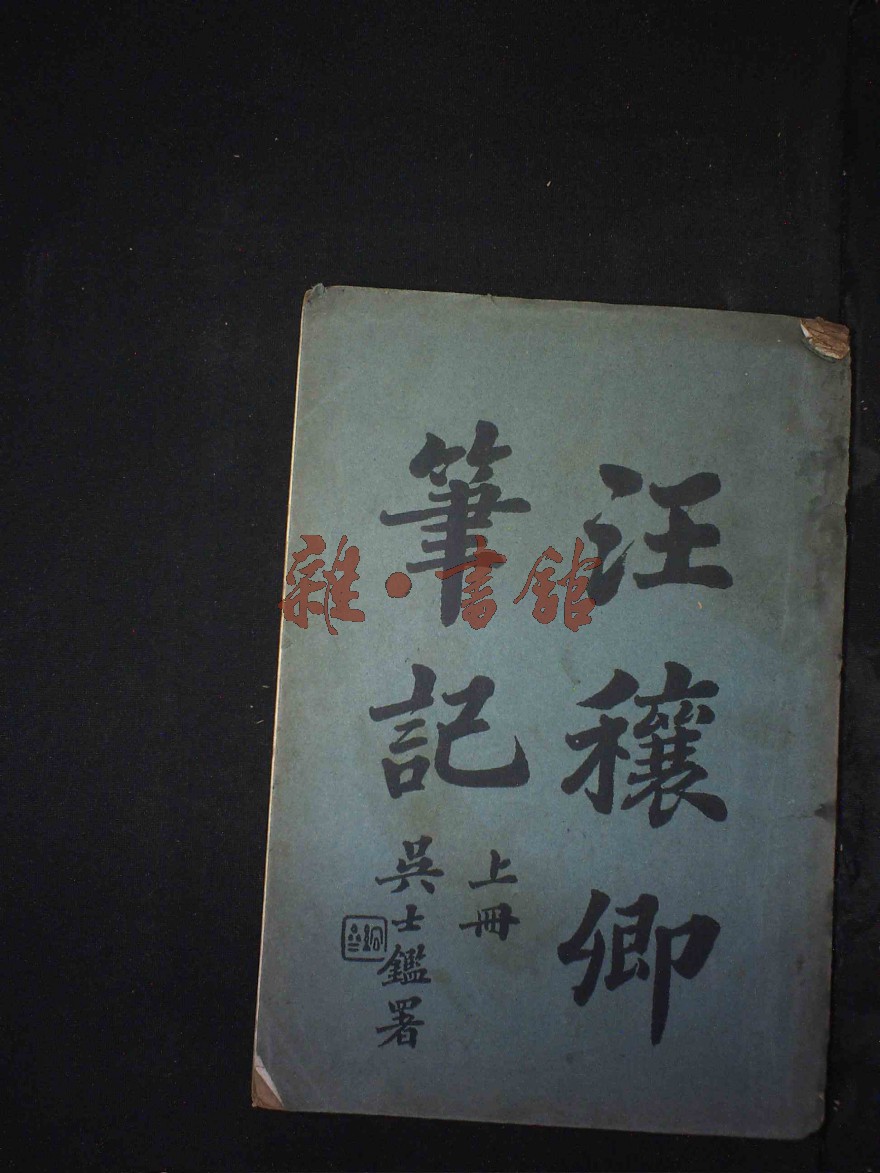 汪穰卿
筆記
上冊
吳士鑑署
雜·書館